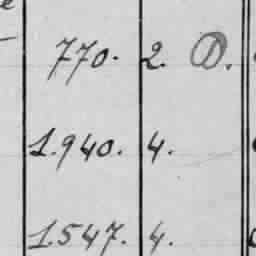 770. 2. D.
1.940. 4.
1.547. 4.